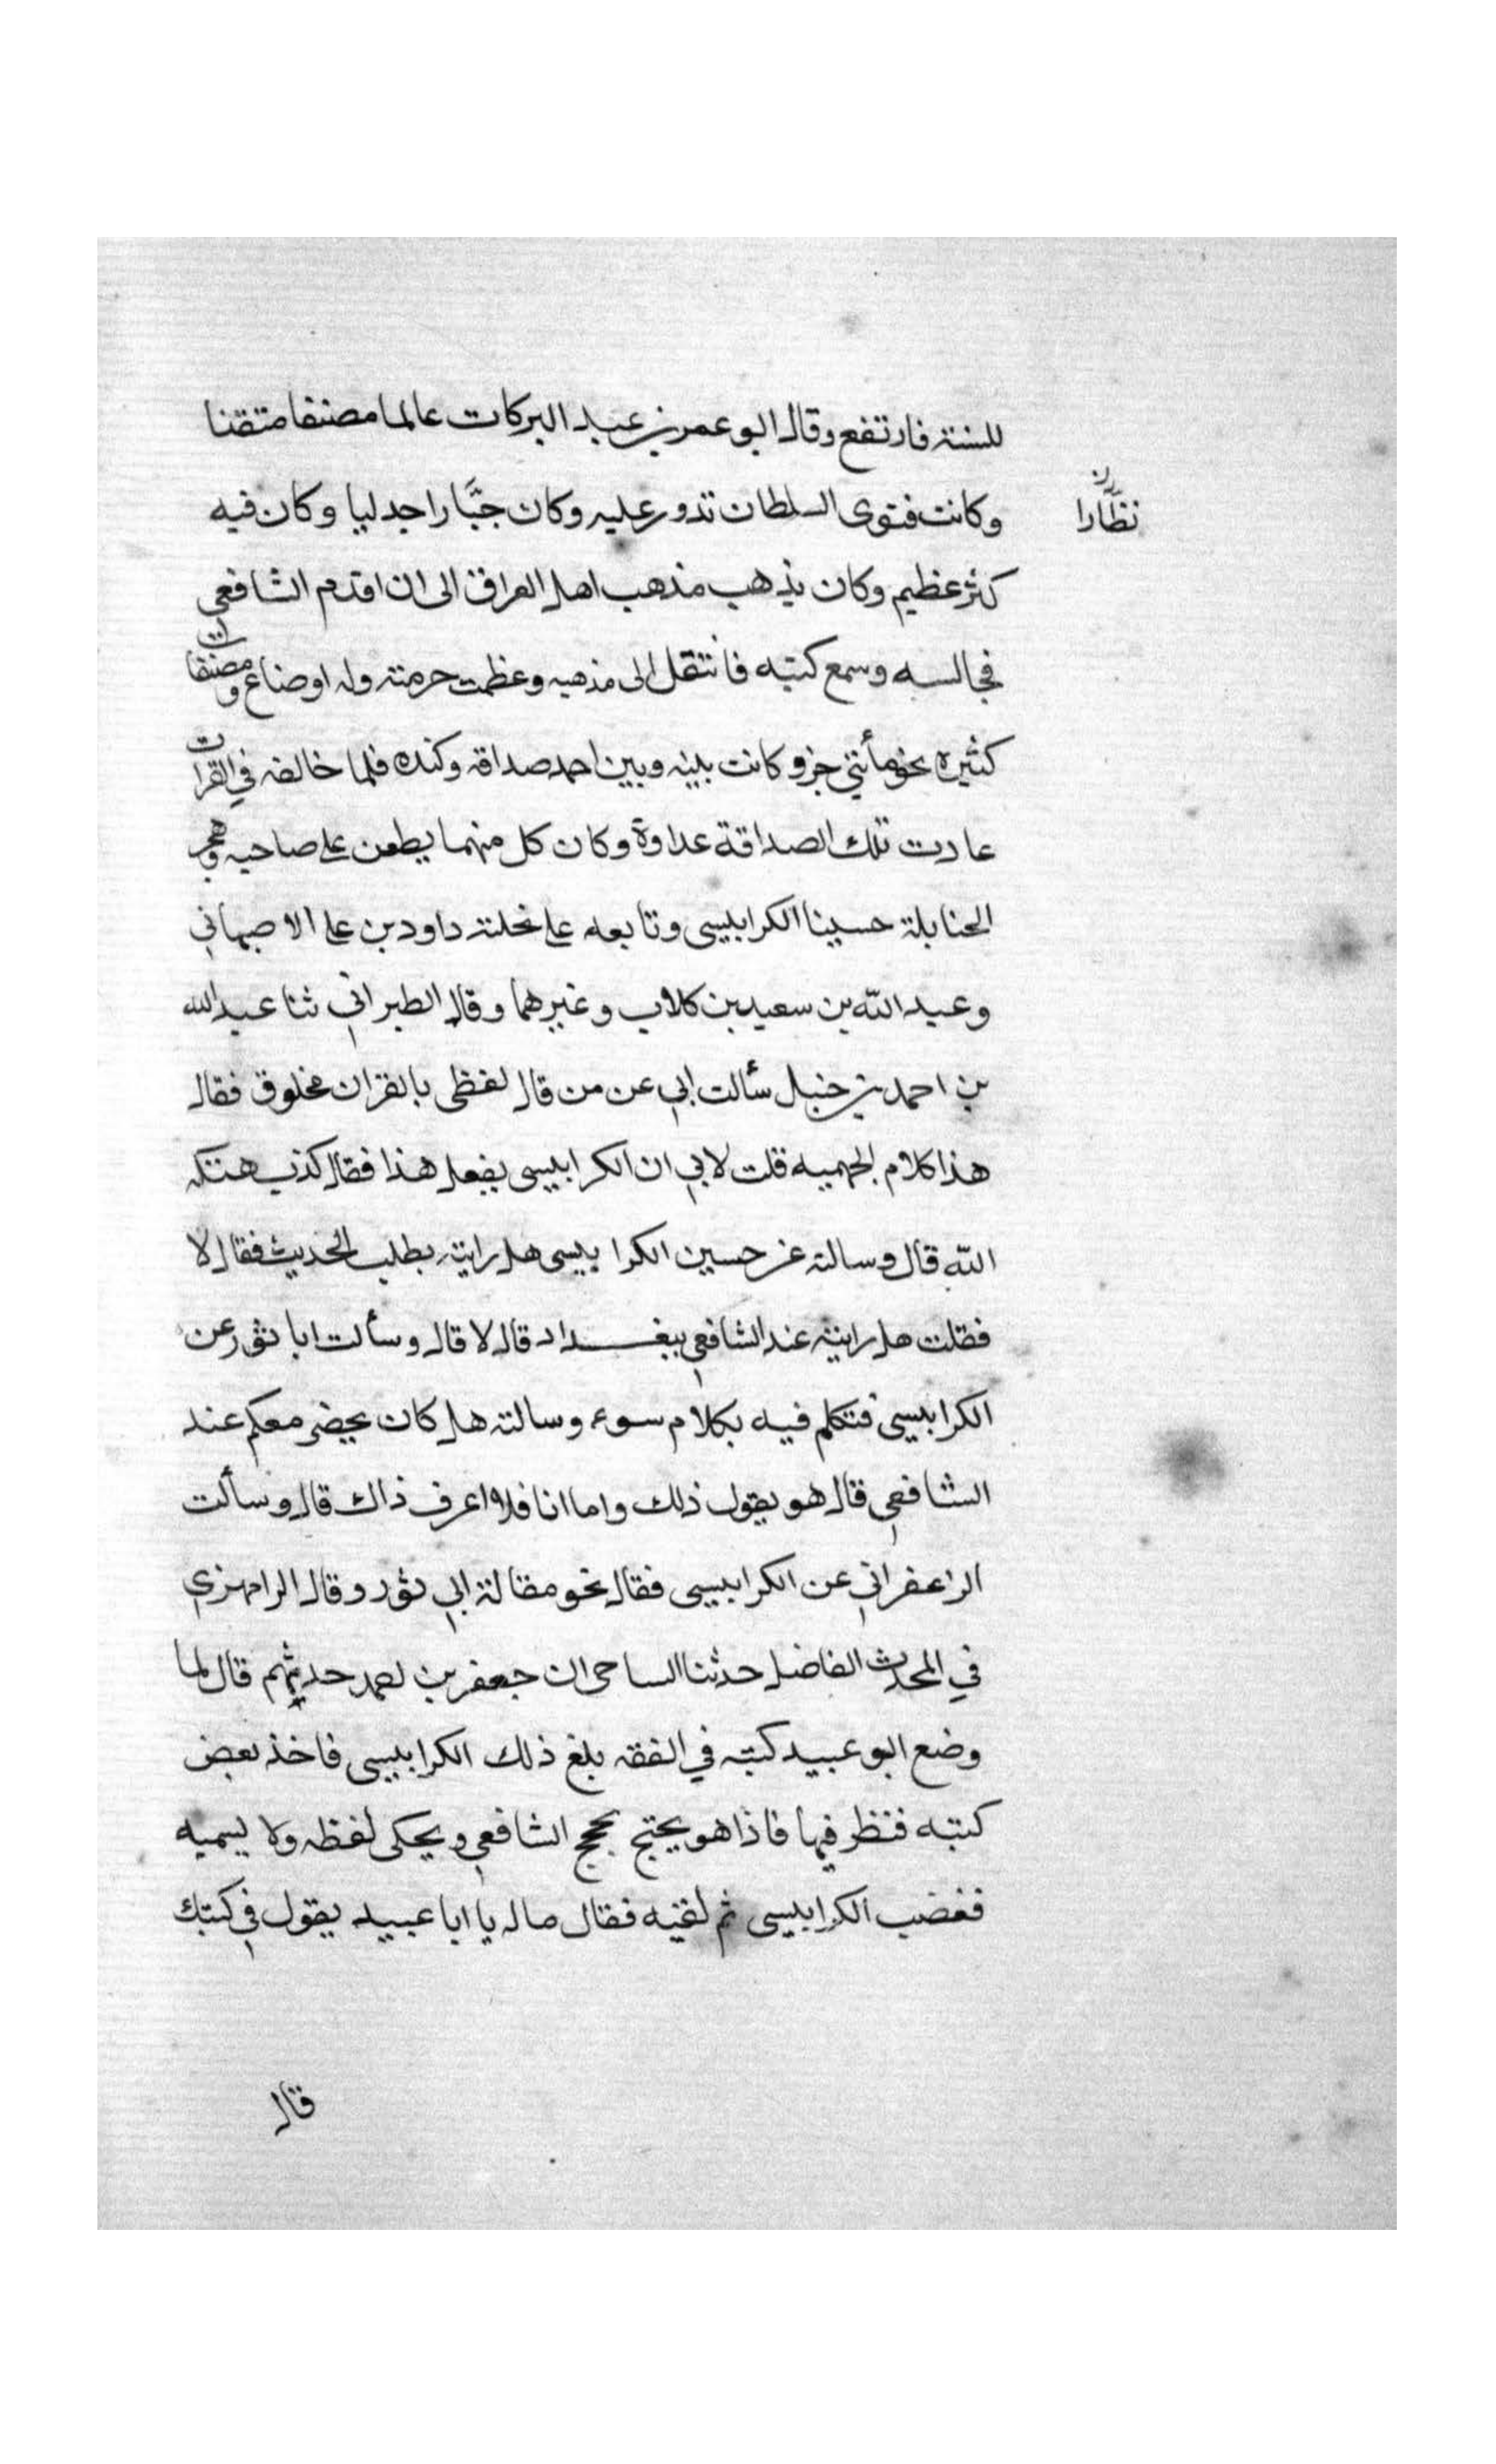 للسنة فارتفع وقال ابو عمر بن عبد البركات عالما مصنفا متقنا
وكانت فتوى السلطان تدور عليه وكان جبَّارا جدليا وكان فيه
نظَّارا
كثر عظيم وكان يذهب مذهب اهل العراق الى ان اقدم الشافعي
فجالسه وسمع كتبه فانتقل الى مذهبه وعظمت حرمته وله اوضاع ومصنفات
كثيرة نحو مأتي جزو كانت بينه وبين احمد صداقة وكندة فلما خالفه في القرات
عادت تلك الصداقة عداوة وكان كل منهما يطعن على صاحبه وهجر
الحنابلة حسينا الكرابيسي وتابعه على نحلته داود بن علي الاصبهاني
وعبد الله بن سعيد بن كلاب وغيرهما وقال الطبراني ثنا عبد الله
بن احمد بن حنبل سألت ابي عن من قال لفظي بالقران مخلوق فقال
هذا كلام الجهميه قلت لابي ان الكرابيسي يفعل هذا فقال كذب هتكه
الله قال وسالته عن حسين الكرابيسي هل رايته يطلب الحديث فقال لا
فقلت هل رايته عند الشافعي ببغداد قال لا قال وسألت ابا ثور عن
الكرابيسي فتكلم فيه بكلام سوء وسالته هل كان يحضر معكم عند
الشافعي قال هو يقول ذلك واما انا فلا اعرف ذاك قال وسألت
الزاعفراني عن الكرابيسي فقال نحو مقالة ابي ثور وقال الرامهزي
في المحدث الفاضل حدثنا الساحى ان جعفر بن احمد حدثهم قال لما
وضع ابو عبيد كتبه في الفقه بلغ ذلك الكرابيسي فاخذ بعض
كتبه فنظر فيها فاذا هو يحتج بحجج الشافعي ويحكى لفظه ولا يسميه
فغضب الكرابيسي ثم لقيه فقال ماله يا ابا عبيد يقول في كتبك
قال